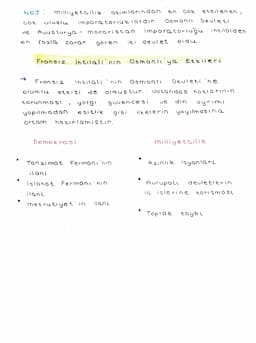 NOT: milliyetçilik akımlarından en çok etkilenen,
çok uluslu imparatorluklardır. Osmanlı Devleti
ve Avusturya-macaristan imparatorluğu ihtilalden
en fazla zarar gören iki devlet oldu.
Fransız İhtilali'nin Osmanlı'ya Etkileri
→ Fransız İhtilali'nin Osmanlı Devleti'ne
olumlu etkisi de olmuştur. Vatandaş haklarının
korunması, yargı güvencesi ve din ayrımı
yapılmadan eşitlik gibi ilkelerin yayılmasına
ortam hazırlamıştır.
Demokrasi
• Tanzimat Fermanı'nın
ilanı
• Islahat Fermanı'nın
ilanı
• meşrutiyet'in ilanı
milliyetçilik
• Azınlık isyanları
• Avrupalı devletlerin
iç işlerine karışması
• Toprak kaybı